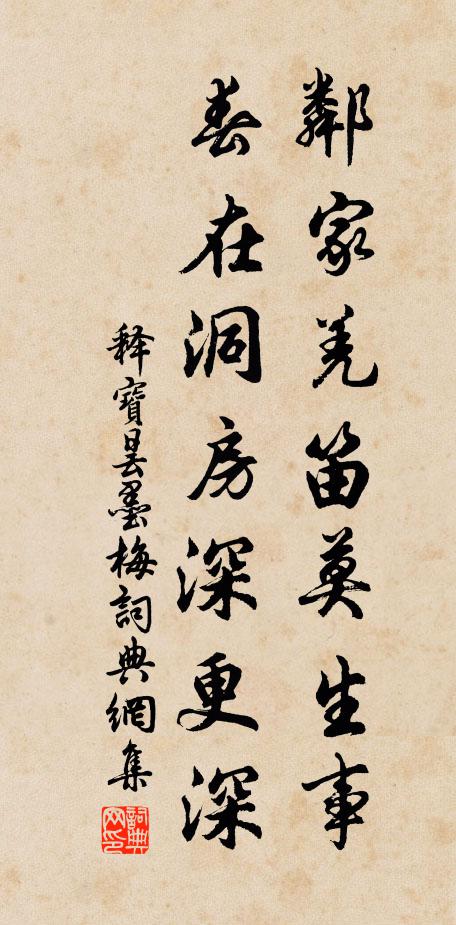 鄰家羌笛莫生事
春在洞房深更深
释寶昙墨梅詞典網集
詞典网印